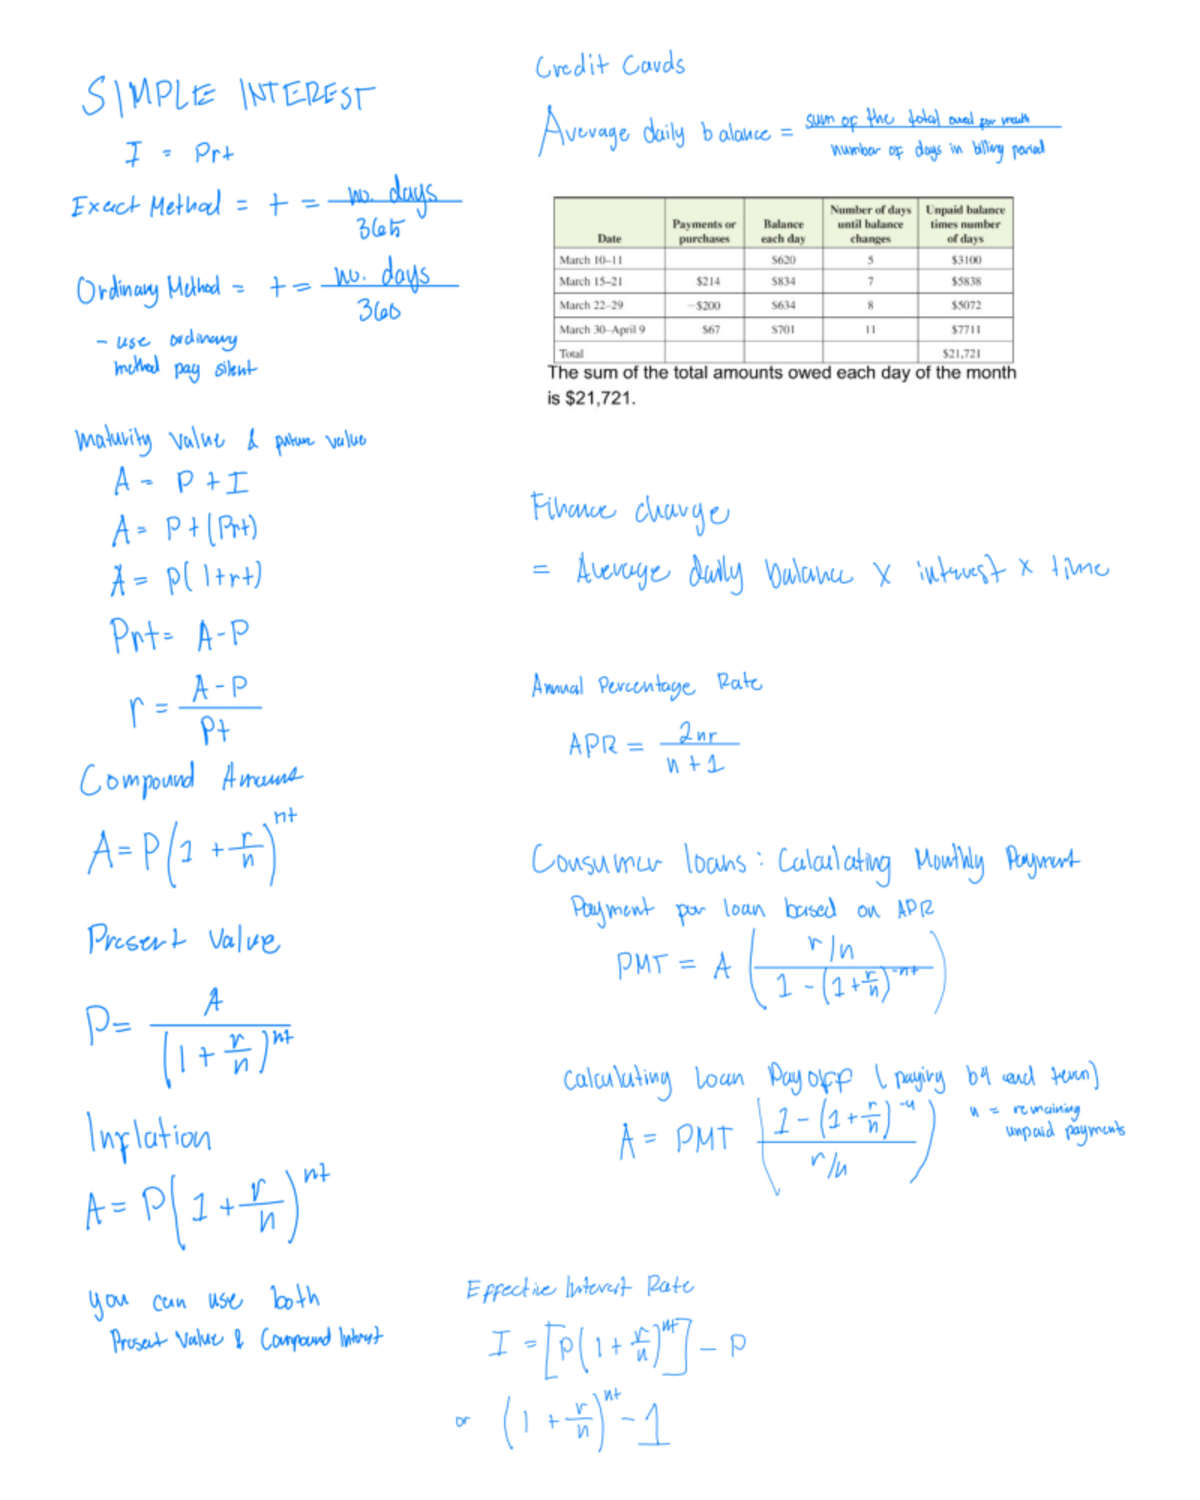 SIMPLE INTEREST
I = Prt
Exact Method = t = no. days / 365
Ordinary Method = t = no. days / 360
- use ordinary
method pag silent
Maturity Value & future value
A = P + I
A = P + (Prt)
A = P(1+rt)
Prt = A-P
r = A-P / Pt
Compound Amount
A = P(1 + r/n)^nt
Present Value
P = A / (1 + r/n)^nt
Inflation
A = P(1 + r/n)^nt
you can use both
Present Value & Compound Interest
Credit Cards
Average daily balance = sum of the total owed per month / number of days in billing period
Date Payments or purchases Balance each day Number of days until balance changes Unpaid balance times number of days
March 10–11 $620 5 $3100
March 15–21 $214 $834 7 $5838
March 22–29 –$200 $634 8 $5072
March 30–April 9 $67 $701 11 $7711
Total $21,721
The sum of the total amounts owed each day of the month
is $21,721.
Finance charge
= Average daily balance x interest x time
Annual Percentage Rate
APR = 2nr / n+1
Consumer loans : Calculating Monthly Payment
Payment for loan based on APR
PMT = A ( r/n / 1 - (1 + r/n)^-nt )
Calculating Loan Payoff (paying b4 end term)
A = PMT ( 1 - (1 + r/n)^-u / r/n )
u = remaining
unpaid payments
Effective Interest Rate
I = [P(1 + r/n)^nt] - P
or (1 + r/n)^nt - 1